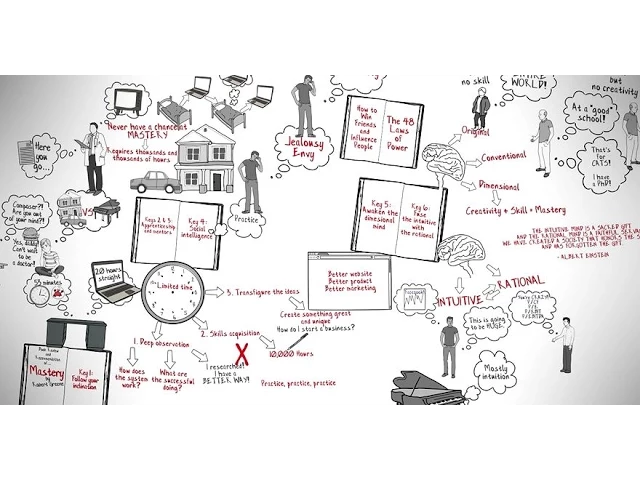 no skill
WORLD!
but
no creativity
Never have a chance at
MASTERY
Requires thousands and
thousands of hours
Here
you
go...
Jealousy
Envy
How to
Win
Friends
and
Influence
People
The 48
Laws
of
Power
Original
Conventional
Dimensional
Creativity + Skill + Mastery
At a "good"
school!
That's
for
CATS!
I have
a PhD!
Composer?!
Are you out
of your mind?!
VS
Yes, daddy!
Can't wait
to be
a doctor!
53 minutes
Keys 2 & 3:
Apprenticeship
and mentors
Key 4:
Social
intelligence
Practice
Key 5:
Awaken the
dimesional
mind
Key 6:
Fuse
the intuitive
with
the rational
THE INTUITIVE MIND IS A SACRED GIFT
AND THE RATIONAL MIND IS A FAITHFUL SERVANT
WE HAVE CREATED A SOCIETY THAT HONORS THE
AND HAS FORGOTTEN THE GIFT.
- ALBERT EINSTEIN
20 hours
straight
Limited time
3. Transfigure the ideas
Better website
Better product
Better marketing
Create something great
and unique
How do I start a business?
2. Skills acquisition
10,000 Hours
1. Deep observation
How does
the system
work?
What are
the successful
doing?
I researched!
I have a
BETTER WAY!
Practice, practice, practice
INTUITIVE
RATIONAL
This is
going to
be HUGE!
Mostly
intuition
Mastery
by Robert Greene
Key 1:
Follow your
inclination